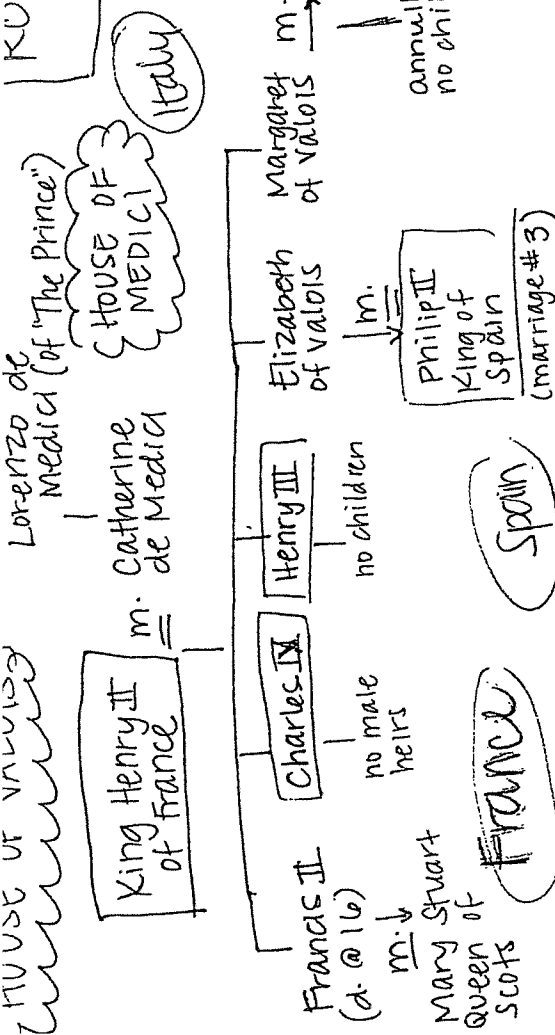 HOUSE OF VALOIS
Lorenzo de
Medici (of "The Prince")
HOUSE OF
MEDICI
Italy
King Henry II
of France
m.
Catherine
de Medici
Francis II
(d. @ 16)
m.
Mary Stuart
Queen of
Scots
Charles IX
no male
heirs
Henry III
no children
Elizabeth
of Valois
m.
Philip II
King of
Spain
(marriage #3)
Margaret
of Valois
m.
annull
no chil
France
Spain